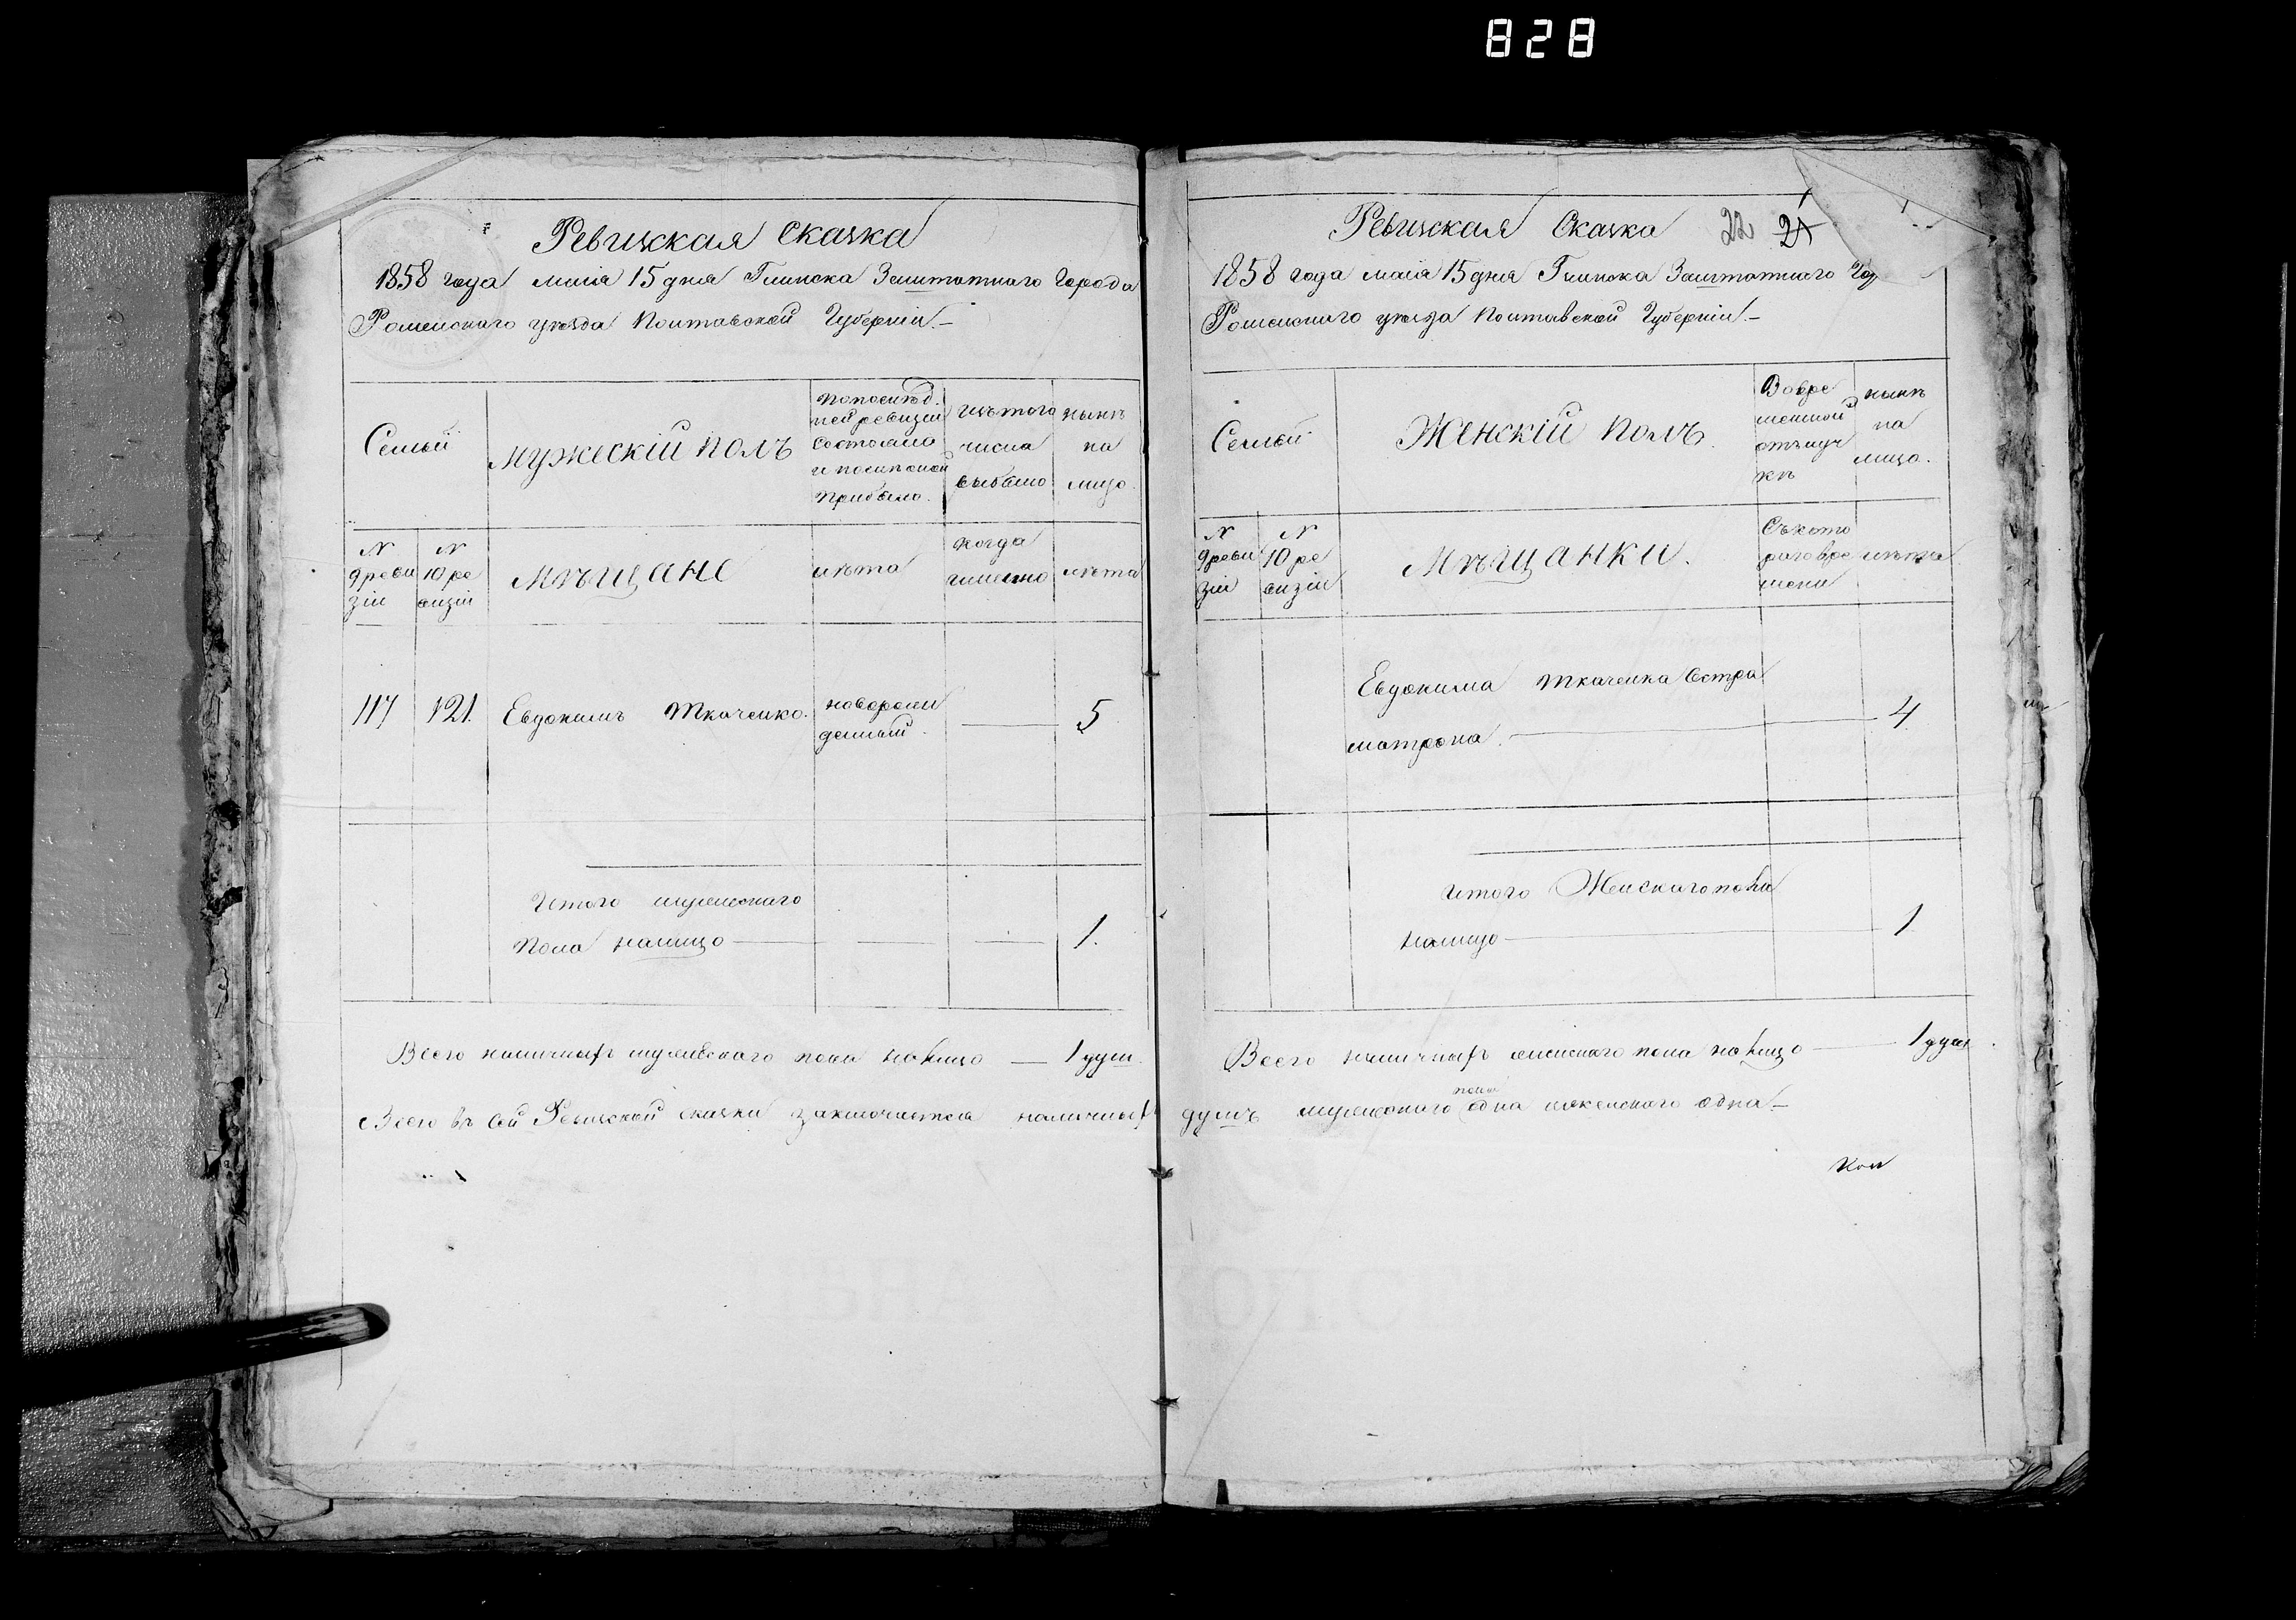 828
Ревизская Сказка
1858 года маія 15 дня Глинска Заштатного Города
Роменского уезда Полтавской Губерніи.—
Семьи
Мужескій полъ
По послѣд.
ней ревизіи
состояло
и после оной
прибыло.
изъ того
числа
выбыло
нынѣ
на
лицо.
N
9 реви
зіи
N
10 ре
визіи
Мѣщане
лѣта
когда
именно
лѣта
117
121.
Евдокимъ Ткаченко.
новорож
денный.
5
Итого мужеского
пола налицо
1.
Всего наличныхъ мужеского пола налицо — 1 душ.
Всего въ сей Ревизской сказки заключается наличныхъ
Ревизская Сказка
22 21
1858 года маія 15 дня Глинска Заштатного Гор
Роменского уезда Полтавской Губерніи.—
Семьи
Женскій полъ.
Во вре
менной
отлуч
кѣ
нынѣ
на
лицо.
N
9 реви
зіи
N
10 ре
визіи
Мѣщанки.
Съ кото
раго вре
мени
лѣта
Евдокима Ткаченка сестра
матрона.
4
Итого Женского пола
налицо
1
Всего наличныхъ женского пола налицо — 1 душ.
душъ мужеского пола одна и женского одна—